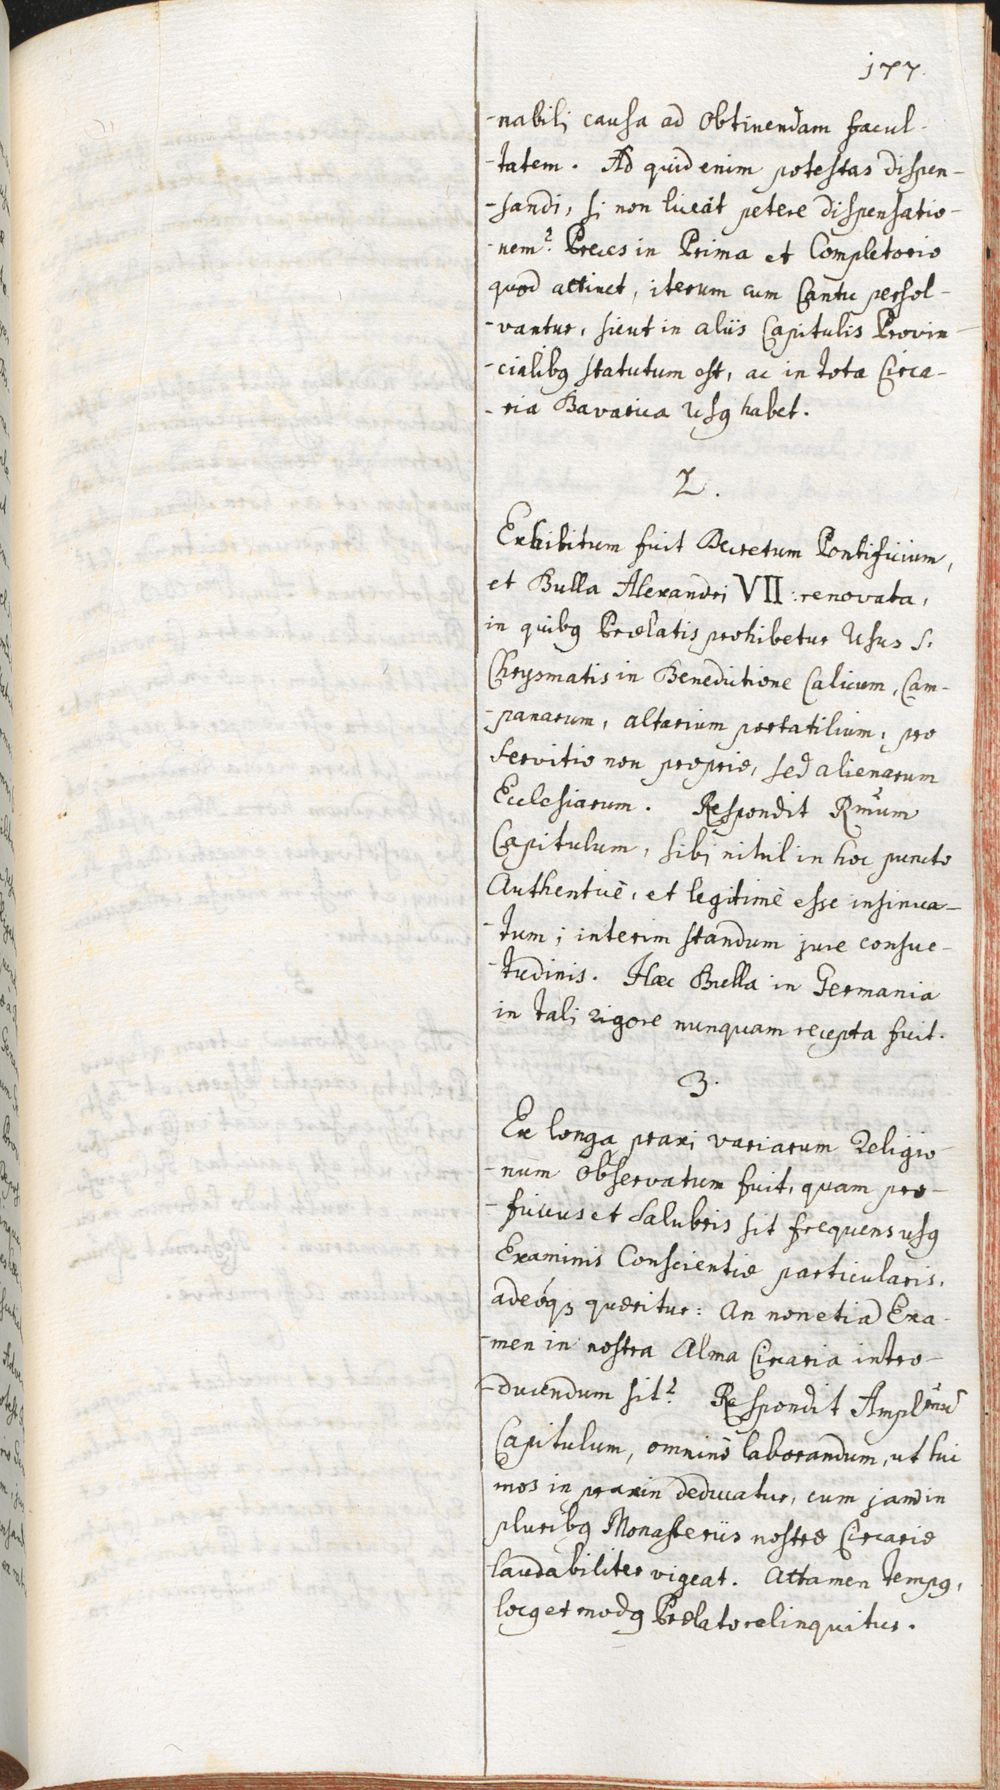 177.
-nabili causa ad obtinendam facul-
-tatem. Ad quid enim potestas dispen-
-sandi, si non liceat petere dispensatio-
-nem? Preces in Prima et Completorio
quod attinet, iterum cum Cantu persol-
-vantur, sicut in aliis Capitulis Provin-
-cialibq statutum est, ac in tota Circa-
-ria Bavarica Usq habet.
2.
Exhibitum fuit Decretum Pontificium,
et Bulla Alexandri VII: renovata,
in quibq Prælatis prohibetur Usus S.
Chrysmatis in Benedictione Calicum, Cam-
-panarum, altarium portatilium, pro
servitio non proprio, sed alienarum
Ecclesiarum. Respondit Rmum
Capitulum, sibi nihil in hoc puncto
Authenticè, et legitimè esse insinua-
-tum; interim standum jure consue-
-tudinis. Hæc Bulla in Germania
in tali rigore nunquam recepta fuit.
3.
Ex longa praxi variarum Religio-
-num observatum fuit, quam pro-
-ficuus et salubris sit frequens usq
Examinis Conscientiæ particularis,
adeóq3 quæritur: An non etiā Exa-
-men in nostra Alma Circaria intro-
-ducendum sit? Respondit Amplmū
Capitulum, omninò laborandum, ut hic
mos in praxin deducatur, cum jam in
pluribq Monasteriis nostræ Circariæ
laudabiliter vigeat. Attamen tempq,
locq et modq Prælato relinquitur.